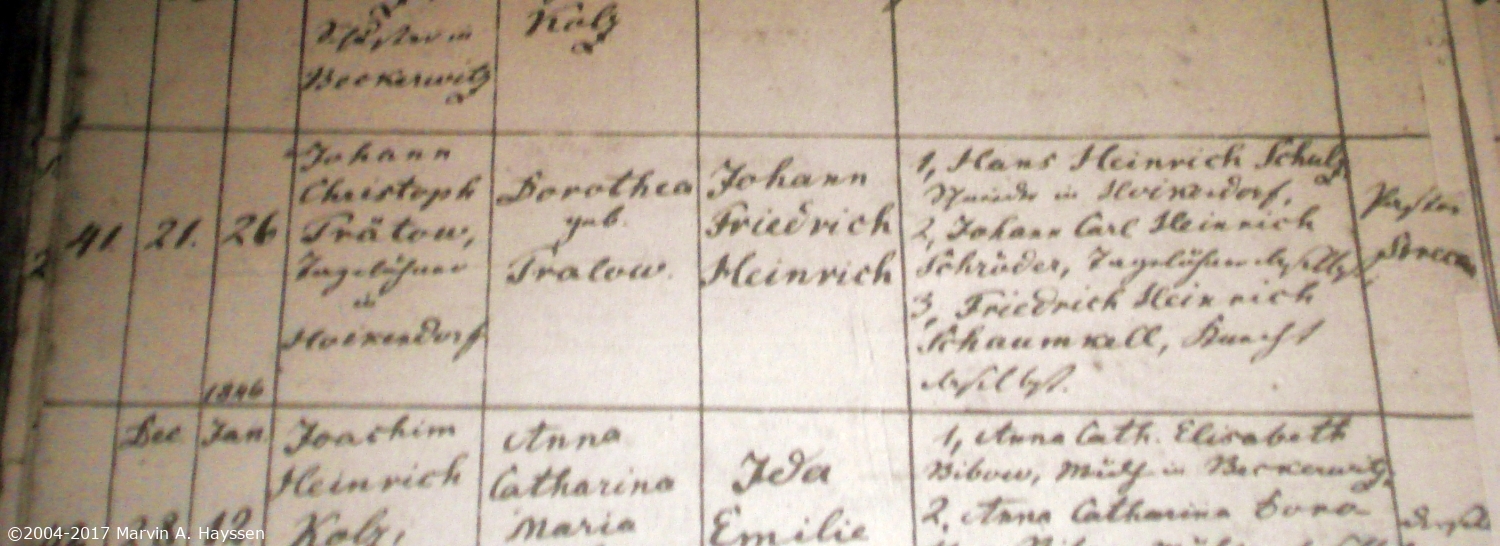 Kolz
Beckerwitz
41. 21. 26
Johann
Christoph
Trätow,
Tagelöhner
in
Hoikendorf
Dorothea
geb.
Tralow.
Johann
Friedrich
Heinrich
1, Hans Heinrich Schulz,
in Hoikendorf,
2, Johann Carl Heinrich
Schröder, Tagelöhner daselbst,
3, Friedrich Heinrich
Schaumkell, Knecht
daselbst.
Pastor
1846
Dec Jan
Joachim
Heinrich
Kolz,
Anna
Catharina
Maria
Ida
Emilie
1, Anna Cath. Elisabeth
Bibow, in Beckerwitz,
2, Anna Catharina
©2004-2017 Marvin A. Hayssen